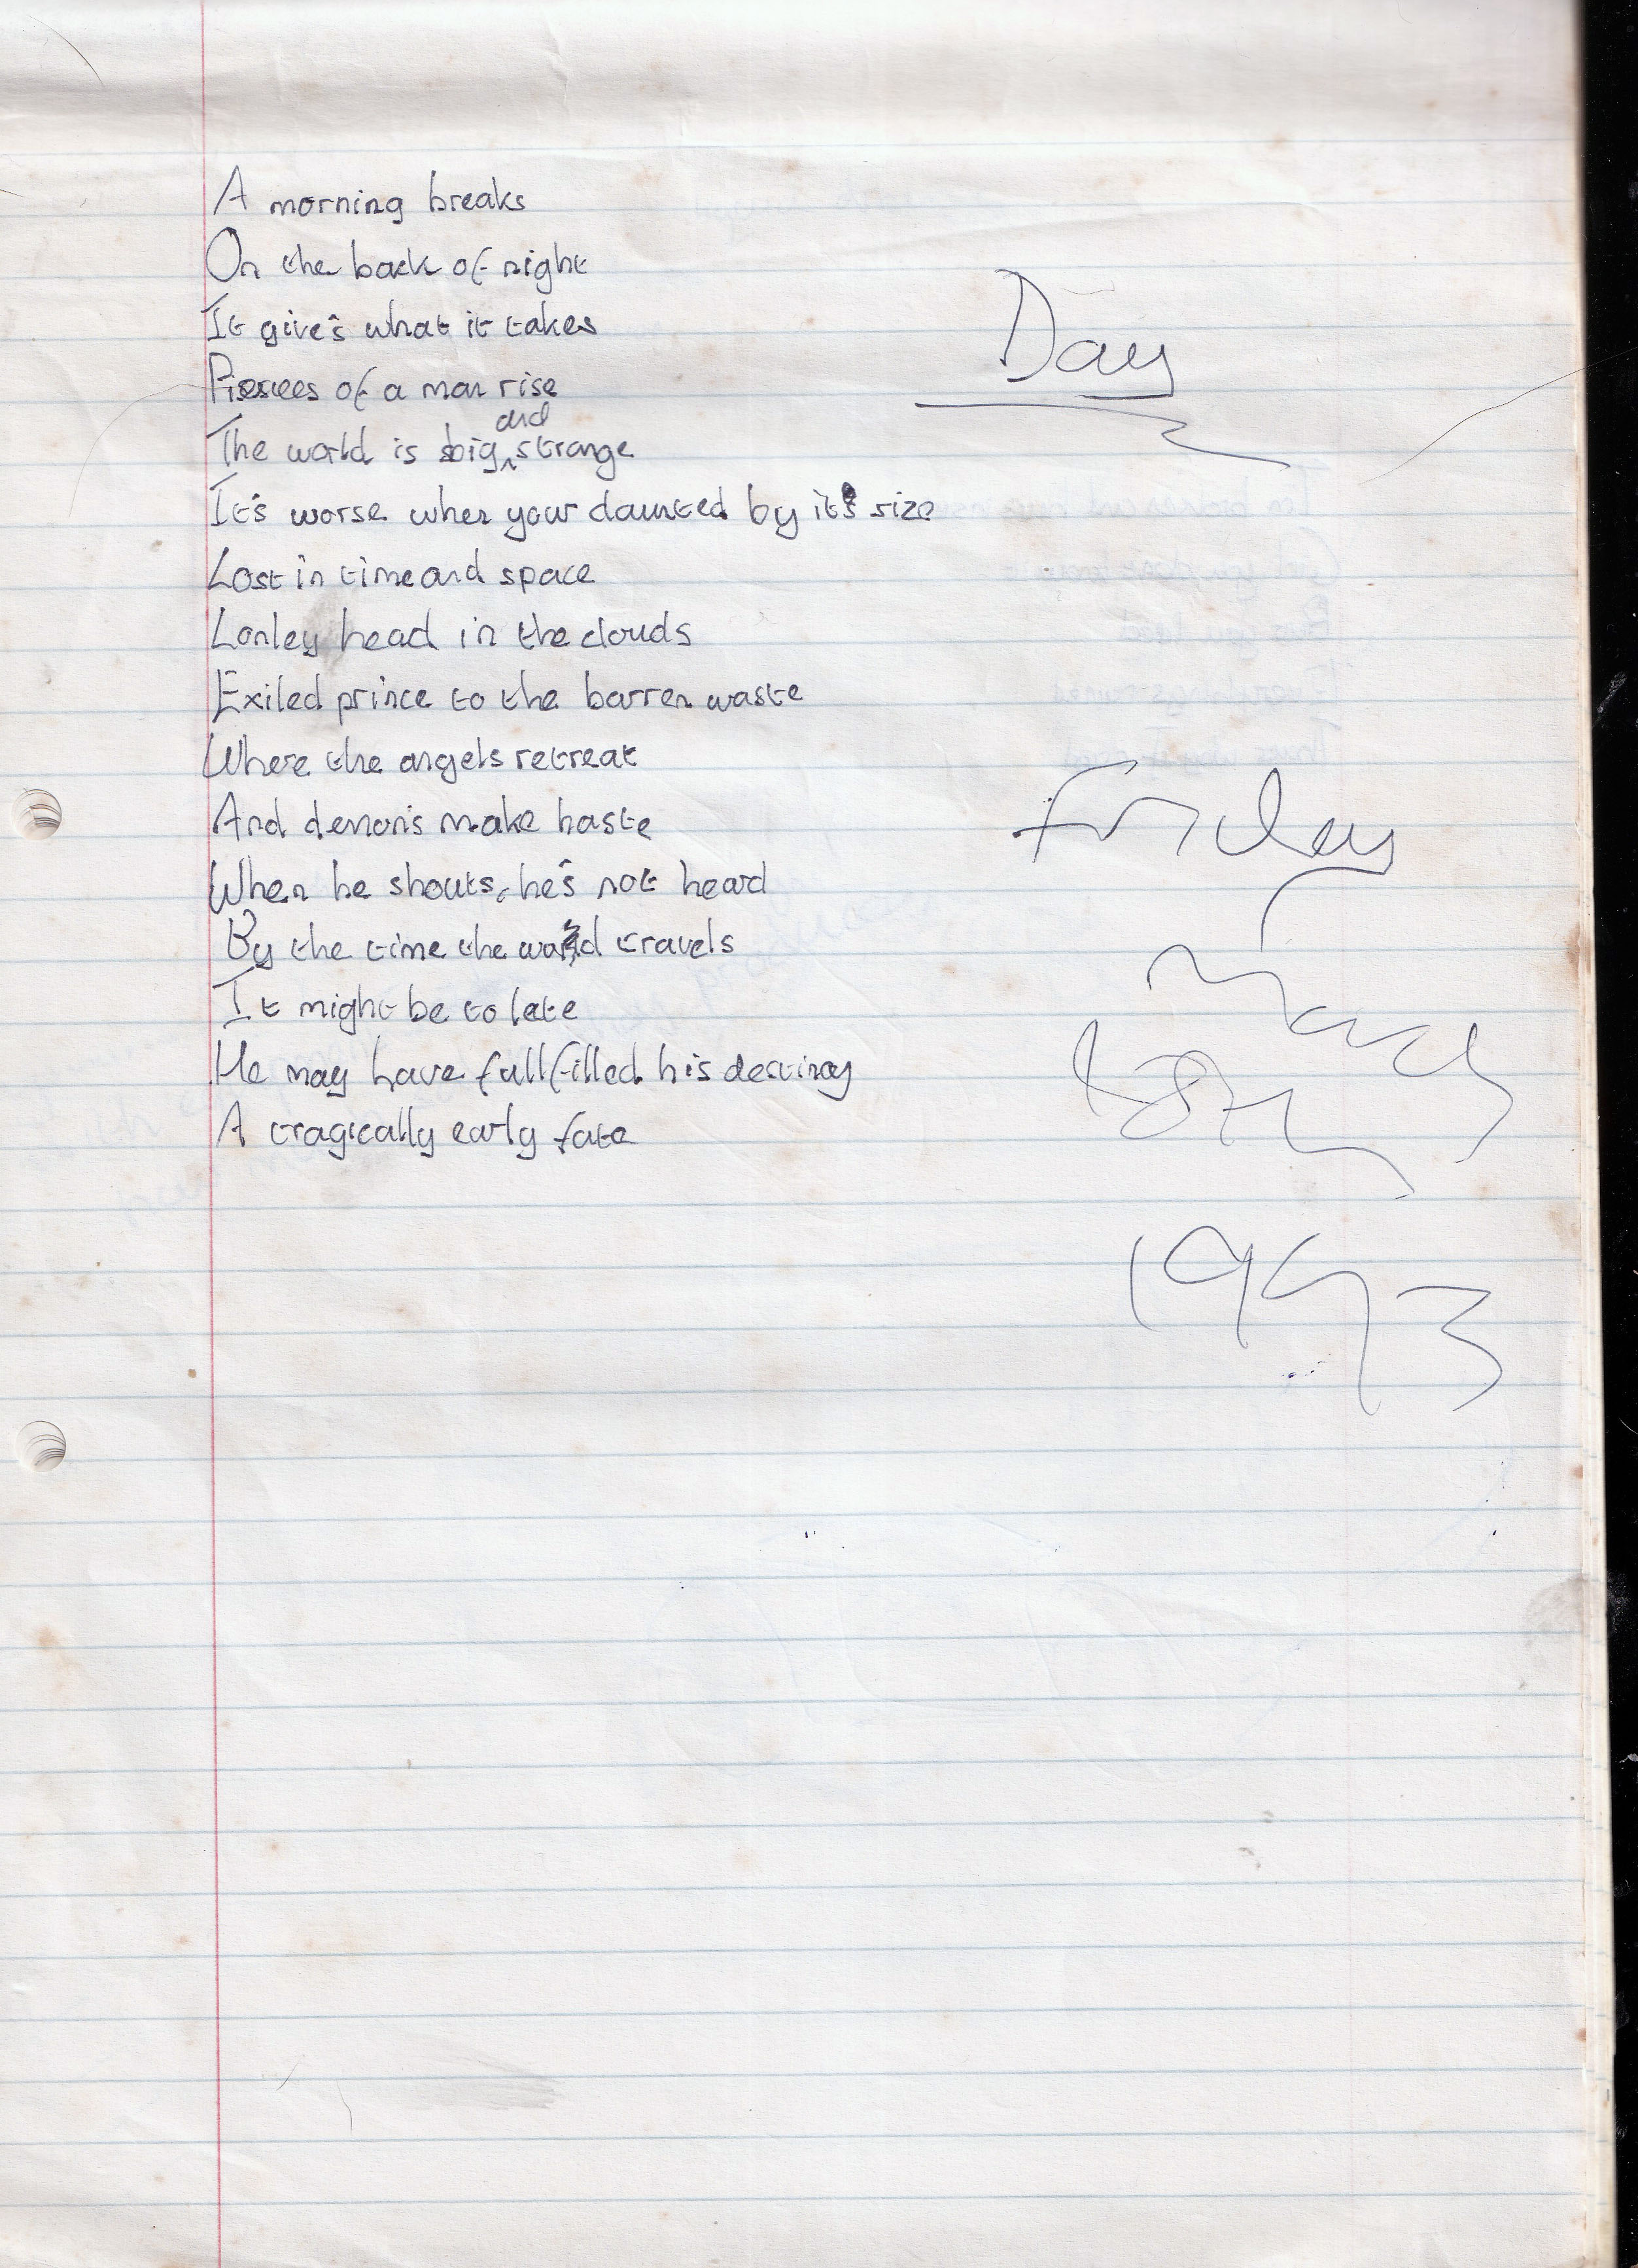 A morning breaks
On the back of night
It give's what it takes
Piecees of a man rise
The world is big and strange
It's worse when your daunted by it's size
Lost in time and space
Lonley head in the clouds
Exiled prince to the barren waste
Where the angels retreat
And demon's make haste
When he shouts, he's not heard
By the time the word travels
It might be to late
He may have fullfilled his destiny
A tragically early fate
Day
Friday
March
1993